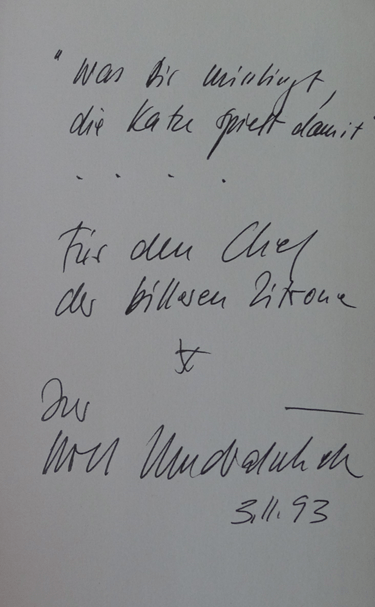 "Was Dir misslingt,
die Katze spielt damit"
. . . .
Für den Chef
der billeren Zitrone
Ihr
Wolf Wondratschek
3.11.93